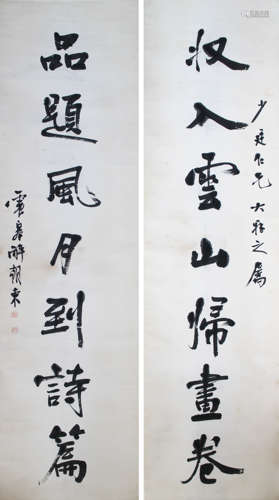 少廷仁兄大雅之属
収入雲山歸畫卷
品題風月到詩篇
霍皋解朝東